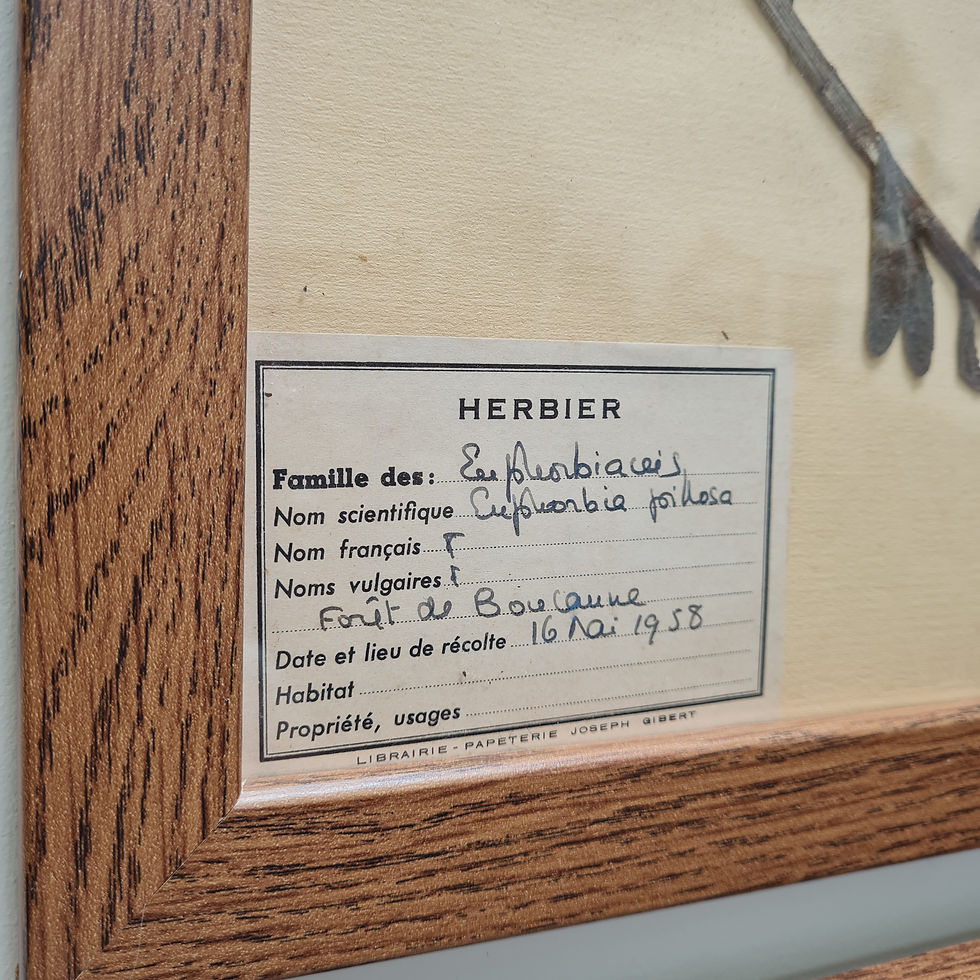 HERBIER
Famille des: Euphorbiaceis
Nom scientifique Euphorbia pilosa
Nom français
Noms vulgaires
Forêt de Bouconne
Date et lieu de récolte 16 Mai 1958
Habitat
Propriété, usages
LIBRAIRIE-PAPETERIE JOSEPH GIBERT